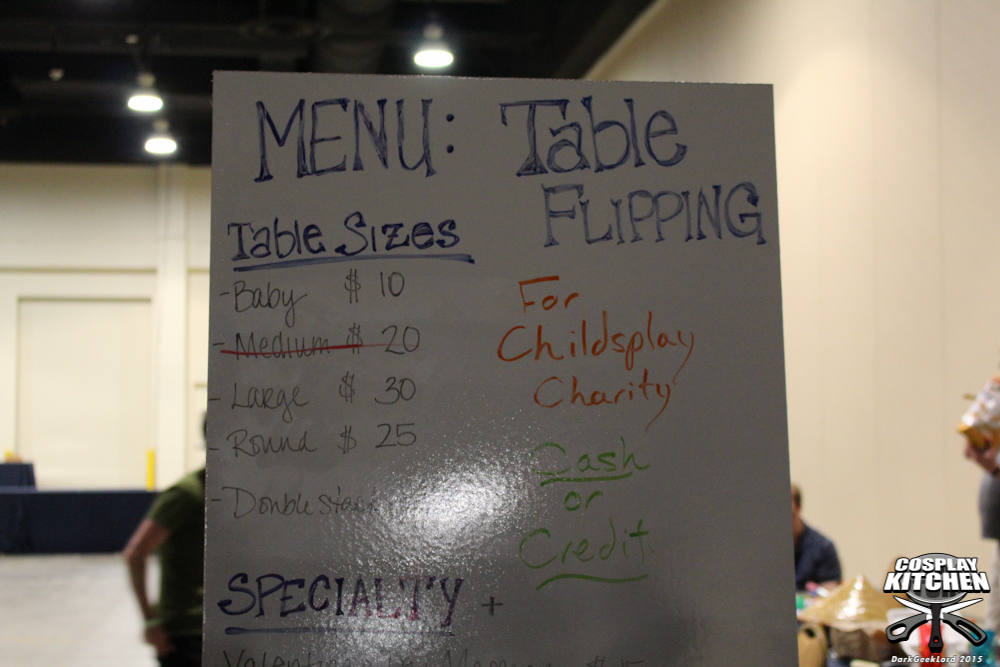 MENU: Table
FLIPPING
Table Sizes
- Baby $ 10
- Medium $ 20
- Large $ 30
- Round $ 25
- Double stack
For
Childsplay
Charity
Cash
or
Credit
SPECIALITY +
COSPLAY
KITCHEN
DarkGeekLord 2015